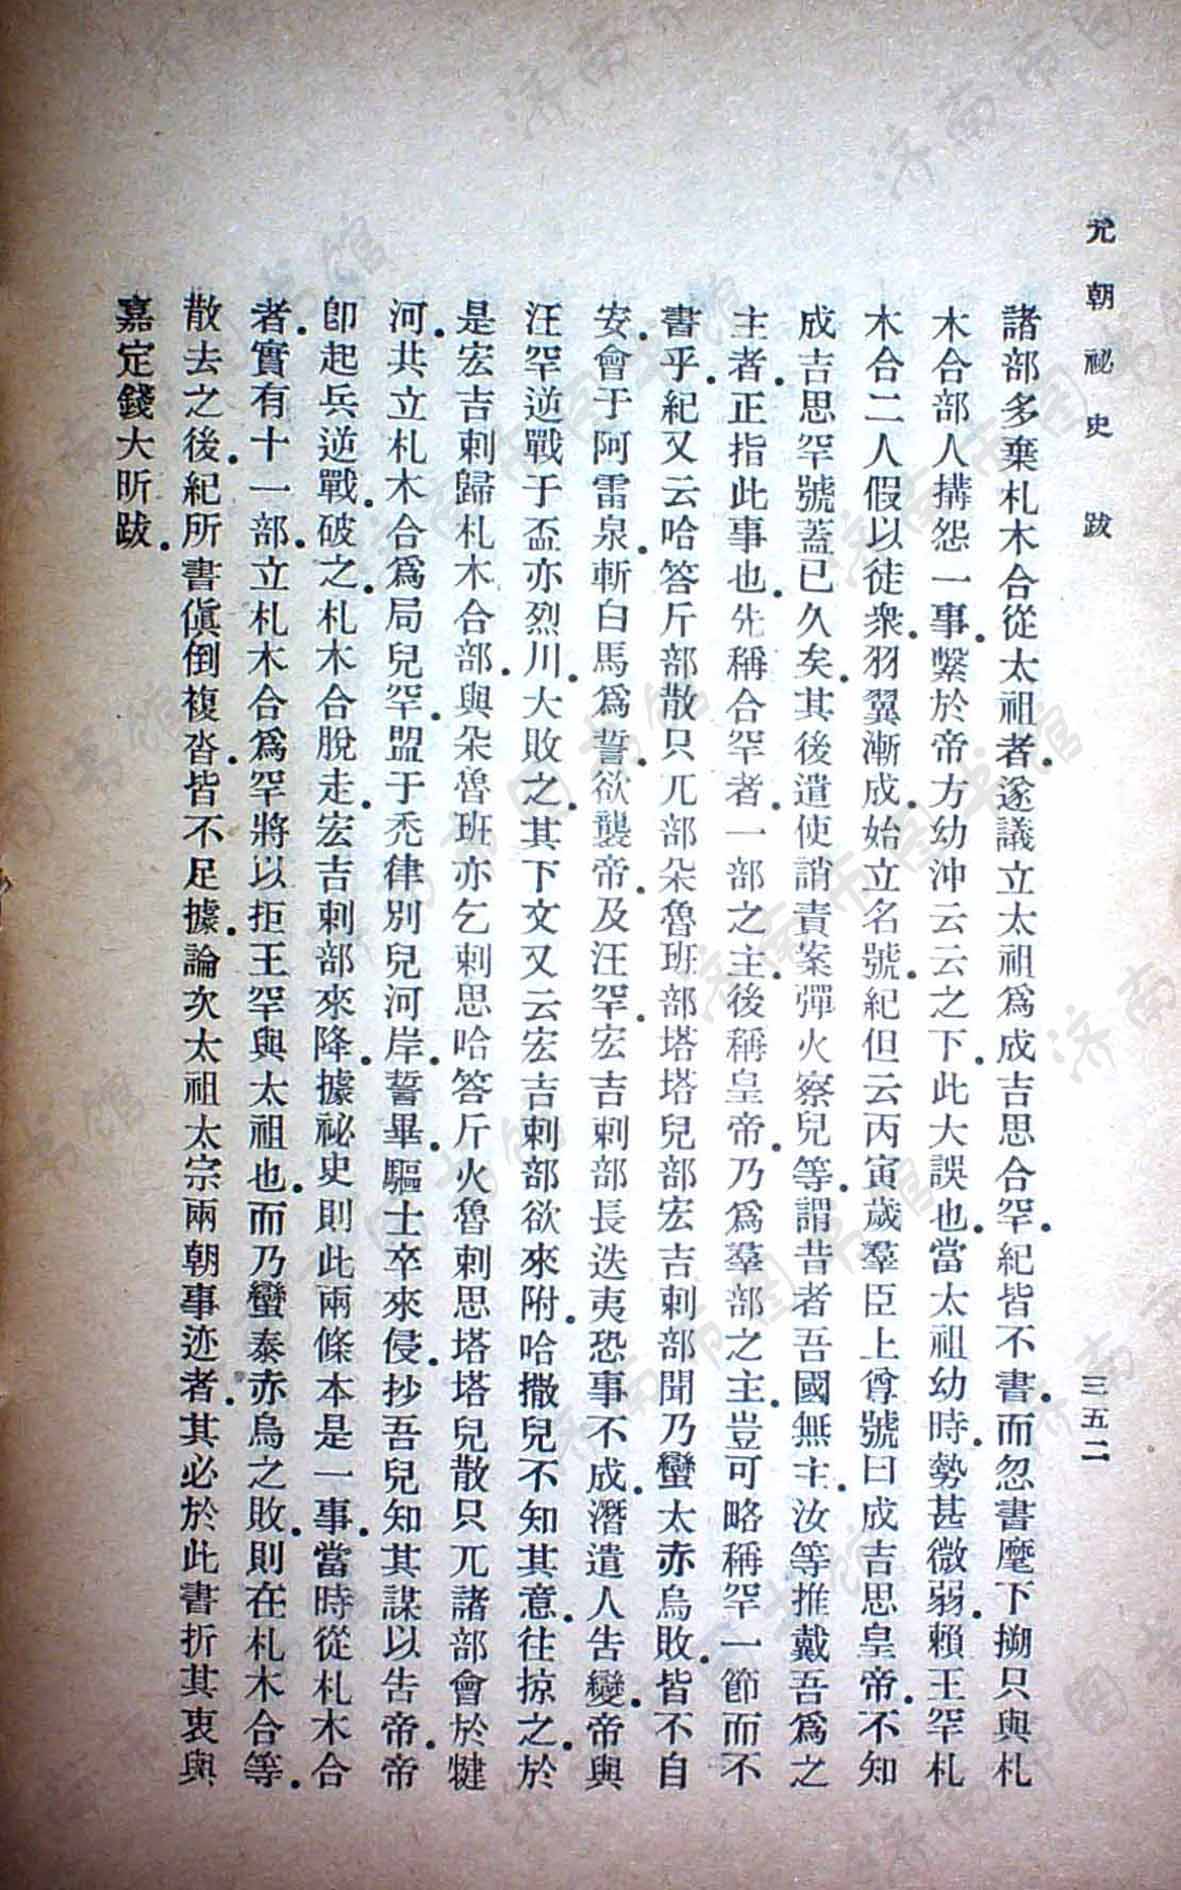 元朝祕史 跋 三五二
諸部多棄札木合從太祖者遂議立太祖爲成吉思合罕紀皆不書而忽書麾下搠只與札
木合部人搆怨一事繫於帝方幼沖云云之下此大誤也當太祖幼時勢甚微弱賴王罕札
木合二人假以徒衆羽翼漸成始立名號紀但云丙寅歲羣臣上尊號曰成吉思皇帝不知
成吉思罕號蓋已久矣其後遣使誚責案彈火察兒等謂昔者吾國無主汝等推戴吾爲之
主者正指此事也先稱合罕者一部之主後稱皇帝乃爲羣部之主豈可略稱罕一節而不
書乎紀又云哈答斤部散只兀部朵魯班部塔塔兒部宏吉剌部聞乃蠻太赤烏敗皆不自
安會于阿雷泉斬白馬爲誓欲襲帝及汪罕宏吉剌部長迭夷恐事不成潛遣人告變帝與
汪罕逆戰于盃亦烈川大敗之其下文又云宏吉剌部欲來附哈撒兒不知其意往掠之於
是宏吉剌歸札木合部與朵魯班亦乞剌思哈答斤火魯剌思塔塔兒散只兀諸部會於犍
河共立札木合爲局兒罕盟于禿律別兒河岸誓畢驅士卒來侵抄吾兒知其謀以告帝帝
卽起兵逆戰破之札木合脫走宏吉剌部來降據祕史則此兩條本是一事當時從札木合
者實有十一部立札木合爲罕將以拒王罕與太祖也而乃蠻泰赤烏之敗則在札木合等
散去之後紀所書傎倒複沓皆不足據論次太祖太宗兩朝事迹者其必於此書折其衷與
嘉定錢大昕跋